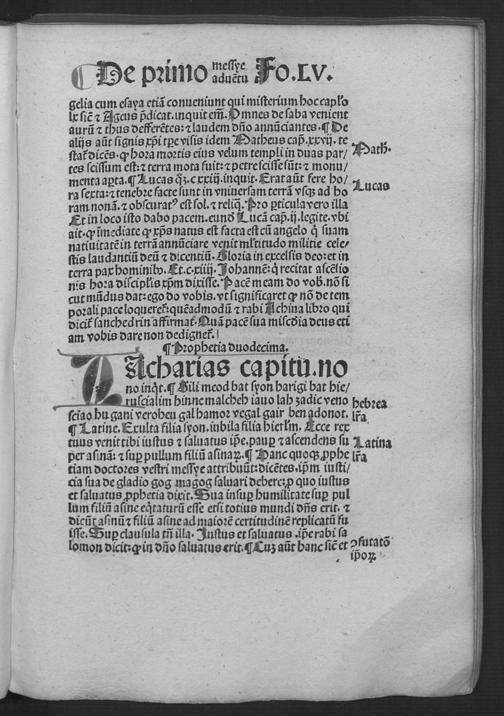 De primo messye aduẽtu Fo.LV.
gelia cum esaya etiã conueniunt qui misterium hoc capl̃o
lx siẽ ⁊ Ageus p̃dicat.inquit eni᷒.Omnes de saba venient
aurũ ⁊ thus defferẽtes:⁊ laudem dño annũciantes.¶De
alijs aũt signis xp̃i tp̃e visis idem Matheus cap̃.xxvij.te
stat̃ dicẽs.ꝙ hora mortis eius velum templi in duas par/
tes scissum est:⁊ terra mota fuit:⁊ petre scisse sũt:⁊ monu/
menta apta.¶Lucas q̃ꝫ.c.xxiij.inquit.Erat aũt fere ho/
ra sexta:⁊ tenebre facte sunt in vniuersam terrã vsqꝫ ad ho
ram nonã.⁊ obscurat᷒ est sol.⁊ reliq̃.Pro ꝑticula vero illa
Et in loco isto dabo pacem.eundẽ Lucã cap̃.ij.legite.vbi
ait.ꝙ imediate ꝙ xp̃s natus est facta est cũ angelo q̃ suam
natiuitatẽ in terrã annũciare venit ml̃titudo militie cele/
stis laudantiũ deũ ⁊ dicentiũ.Gloria in excelsis deo:et in
terra pax hominibꝰ.Et.c.xiiij.Johannẽ:ꝙ recitat ascẽsio
nis hora discipl̃is xp̃m dixisse.Pacẽ meam do vob̃.nõ si
cut mũdus dat:ego do vobis.vt significaret ꝙ nõ de tem
porali pace loqueret̃:quẽadmodũ ⁊ rabi Achina libro qui
dicit̃ sanchedrin affirmat.Quã pacẽ sua mis̃cdia deus eti
am vobis dare non dedignet̃.
¶Prophetia duodecima.
ZAcharias capitu.no
no inq̃t.¶Gili meod bat syon harigi bat hie/
ruscialim hinne malcheh iauo lah zadic veno
sciao hu gani verobeu gal hamor vegal gair ben adonot.
¶Latine.Exulta filia syon.iubila filia hiel̃m.Ecce rex
tuus venit tibi iustus ⁊ saluatus ip̃e.pauꝑ ⁊ ascendens su
per asinã:⁊ suꝑ pullum filiũ asinaꝝ.¶Hanc quoqꝫ ꝓphe
tiam doctores vestri messye attribuũt:dicẽtes.ip̃m iusti/
cia sua de gladio gog magog saluari debere:ꝓ quo iustus
et saluatus ꝓphetia dixit.Sua insuꝑ humilitate suꝑ pul
lum filiũ asine eq̃taturũ esse etsi totius mundi dñs erit.⁊
dicũt asinũ ⁊ filiũ asine ad maiorẽ certitudinẽ replicatũ fu
isse.Suꝑ clausula tñ illa.Justus et saluatus.ip̃e rabi sa
lomon dicit:ꝙ in dño saluatus erit.¶Cuꝫ aũt hanc siẽ et
Math̃.
Lucas
hebrea
lr̃a
Latina
lr̃a
ꝯfutatõ
ip̃oꝝ